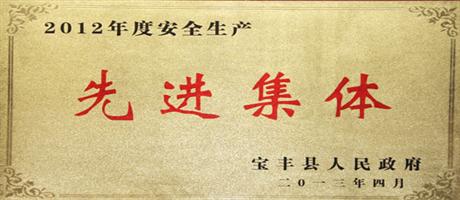 2012年度安全生产
先进集体
宝丰县人民政府
二〇一三年四月